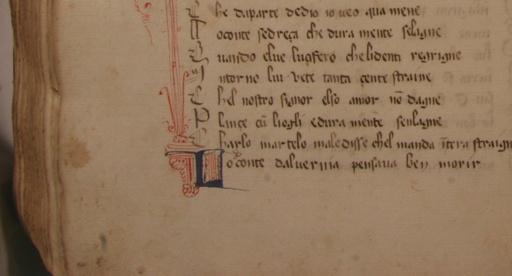 C he daparte dedio io veo qua mene
L oconte sedreça che dura mente selagne
Q uando elue lugfero che lidenti regrigne
I ntorno lui vete tanta cente straine
C hel nostro signor elso amor nō dagne
P lançe cū liogli edura mente senlagne
C harlo martelo maledisse chel manda
L o conte dalvernia pensava ben morir